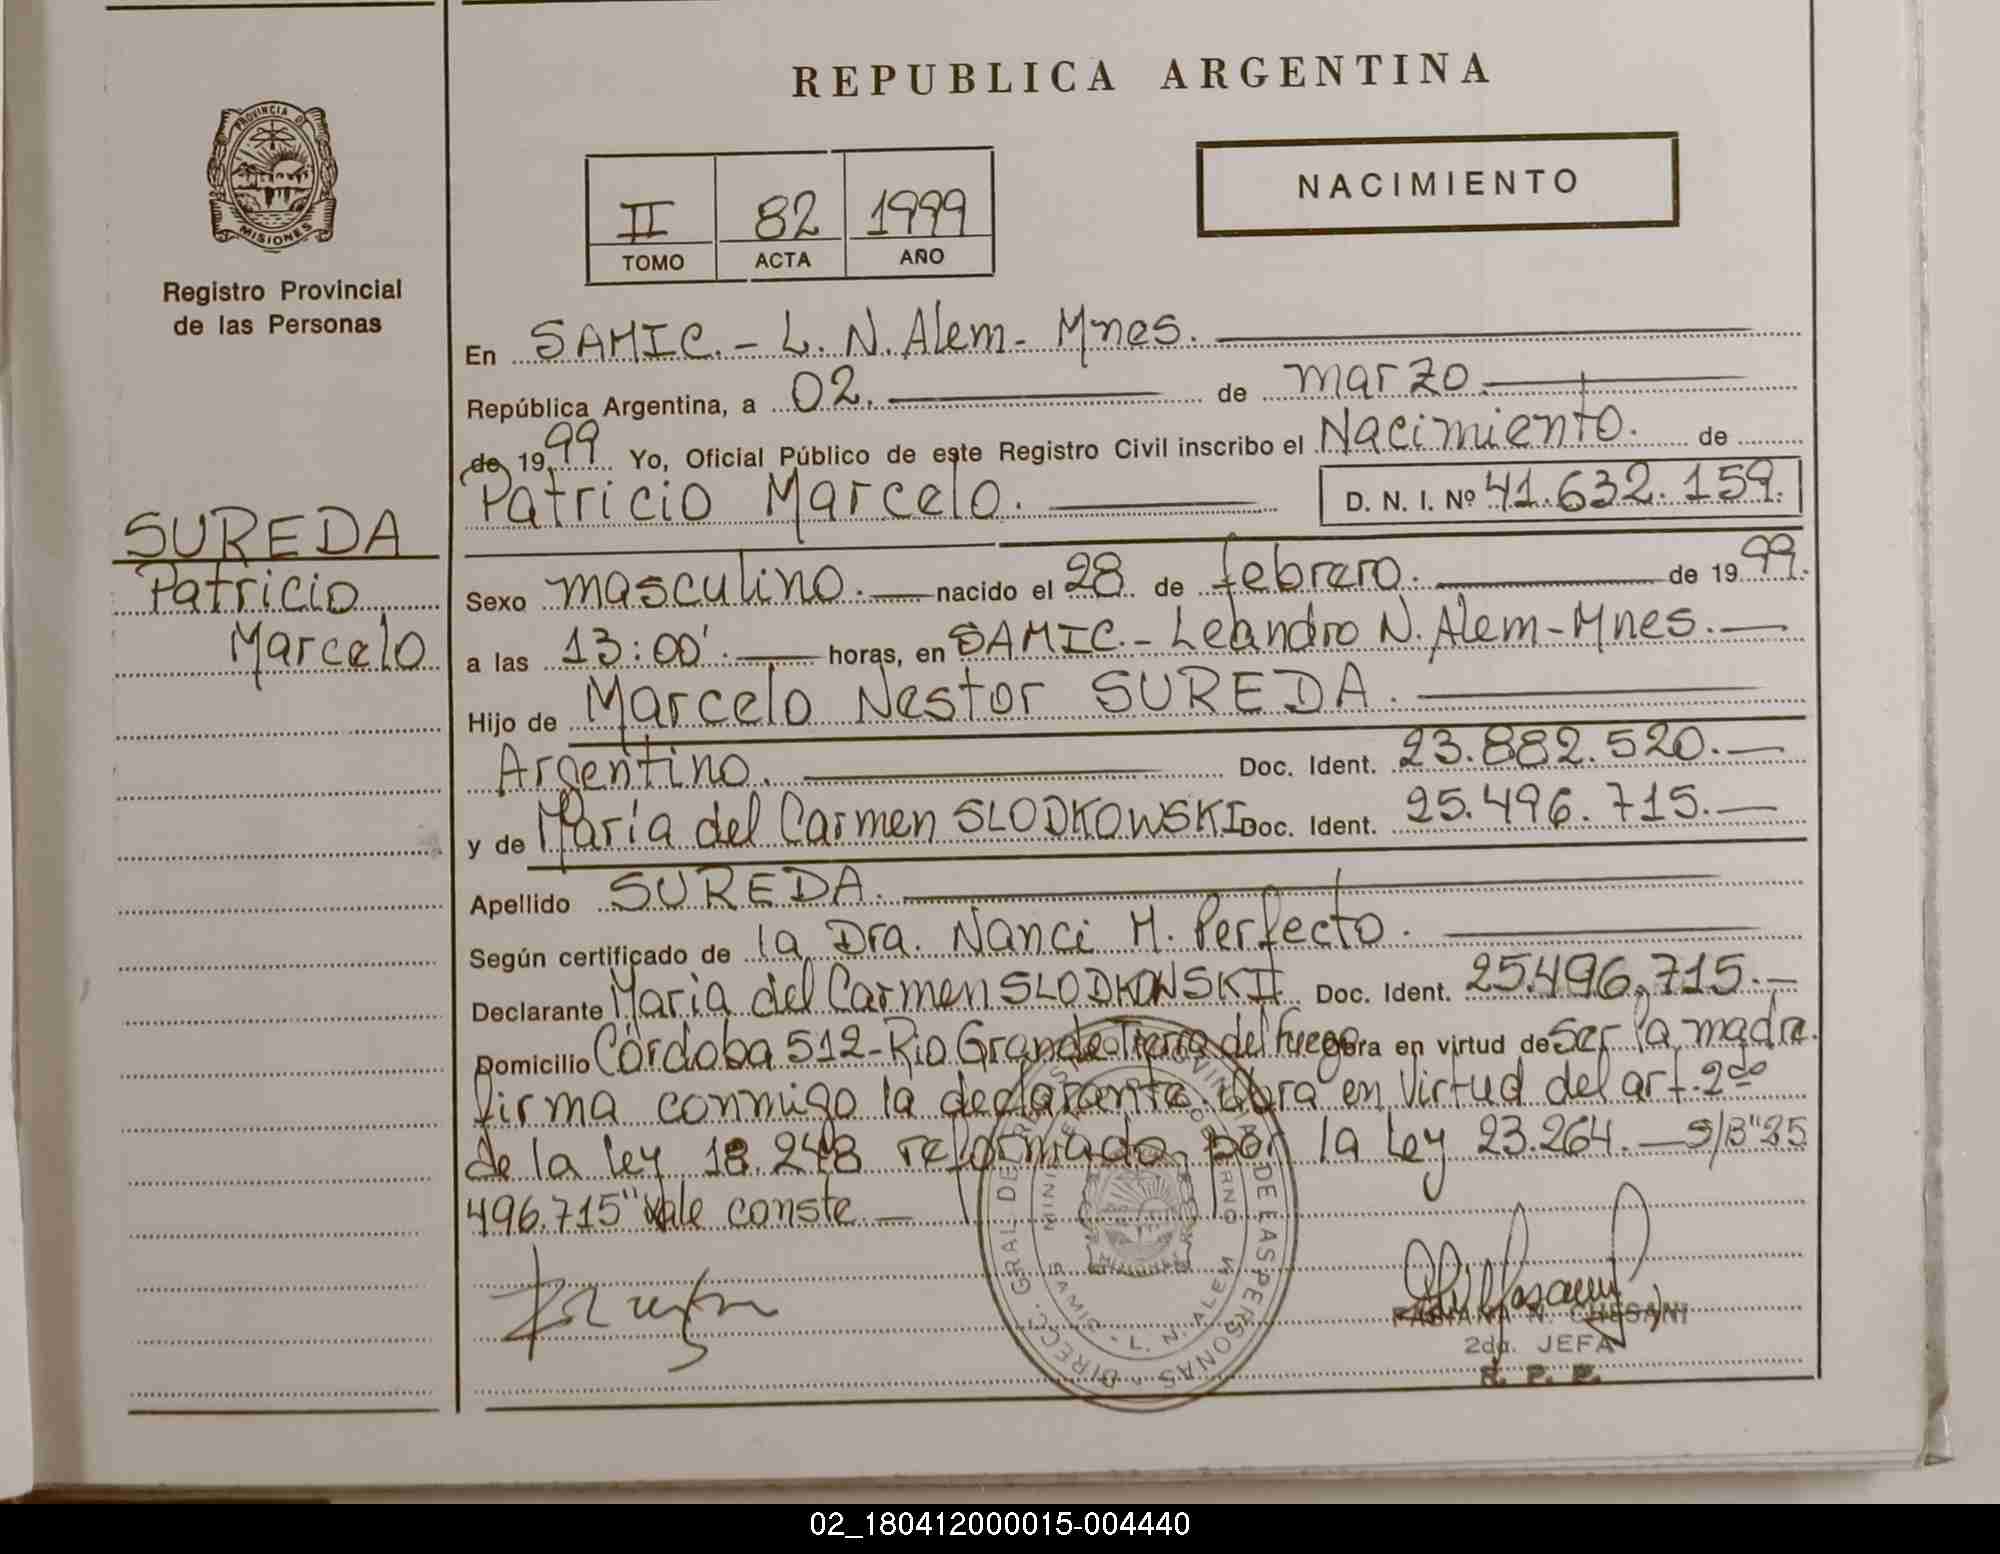 REPUBLICA ARGENTINA
PROVINCIA DE
MISIONES
Registro Provincial
de las Personas
II 82 1999
TOMO ACTA AÑO
NACIMIENTO
En SAMIC.- L. N. Alem- Mnes.
República Argentina, a 02. de marzo
de 1999 Yo, Oficial Público de este Registro Civil inscribo el Nacimiento. de
Patricio Marcelo. D. N. I. Nº 41.632.159.
SUREDA
Patricio
Marcelo
Sexo masculino. nacido el 28 de febrero. de 1999.
a las 13:00'. horas, en SAMIC.- Leandro N. Alem-Mnes.
Hijo de Marcelo Nestor SUREDA.
Argentino. Doc. Ident. 23.882.520.
y de María del Carmen SLODKOWSKI Doc. Ident. 25.496.715.
Apellido SUREDA.
Según certificado de la Dra. Nanci M. Perfecto.
Declarante Maria del Carmen SLODKOWSKII Doc. Ident. 25.496.715.
Domicilio Córdoba 512-Rio Grande-Tierra del Fuego obra en virtud de ser la madre.
firma conmigo la declarante. Obra en Virtud del art. 2do
de la ley 18.248 reformado por la Ley 23.264. S/B"25
496.715" Vale conste
DIRECC. GRAL DE LAS PERSONAS
SAMIC - L. N. ALEM
FABIANA N. CHESANI
2da. JEFA
R. P. P.
02_180412000015-004440